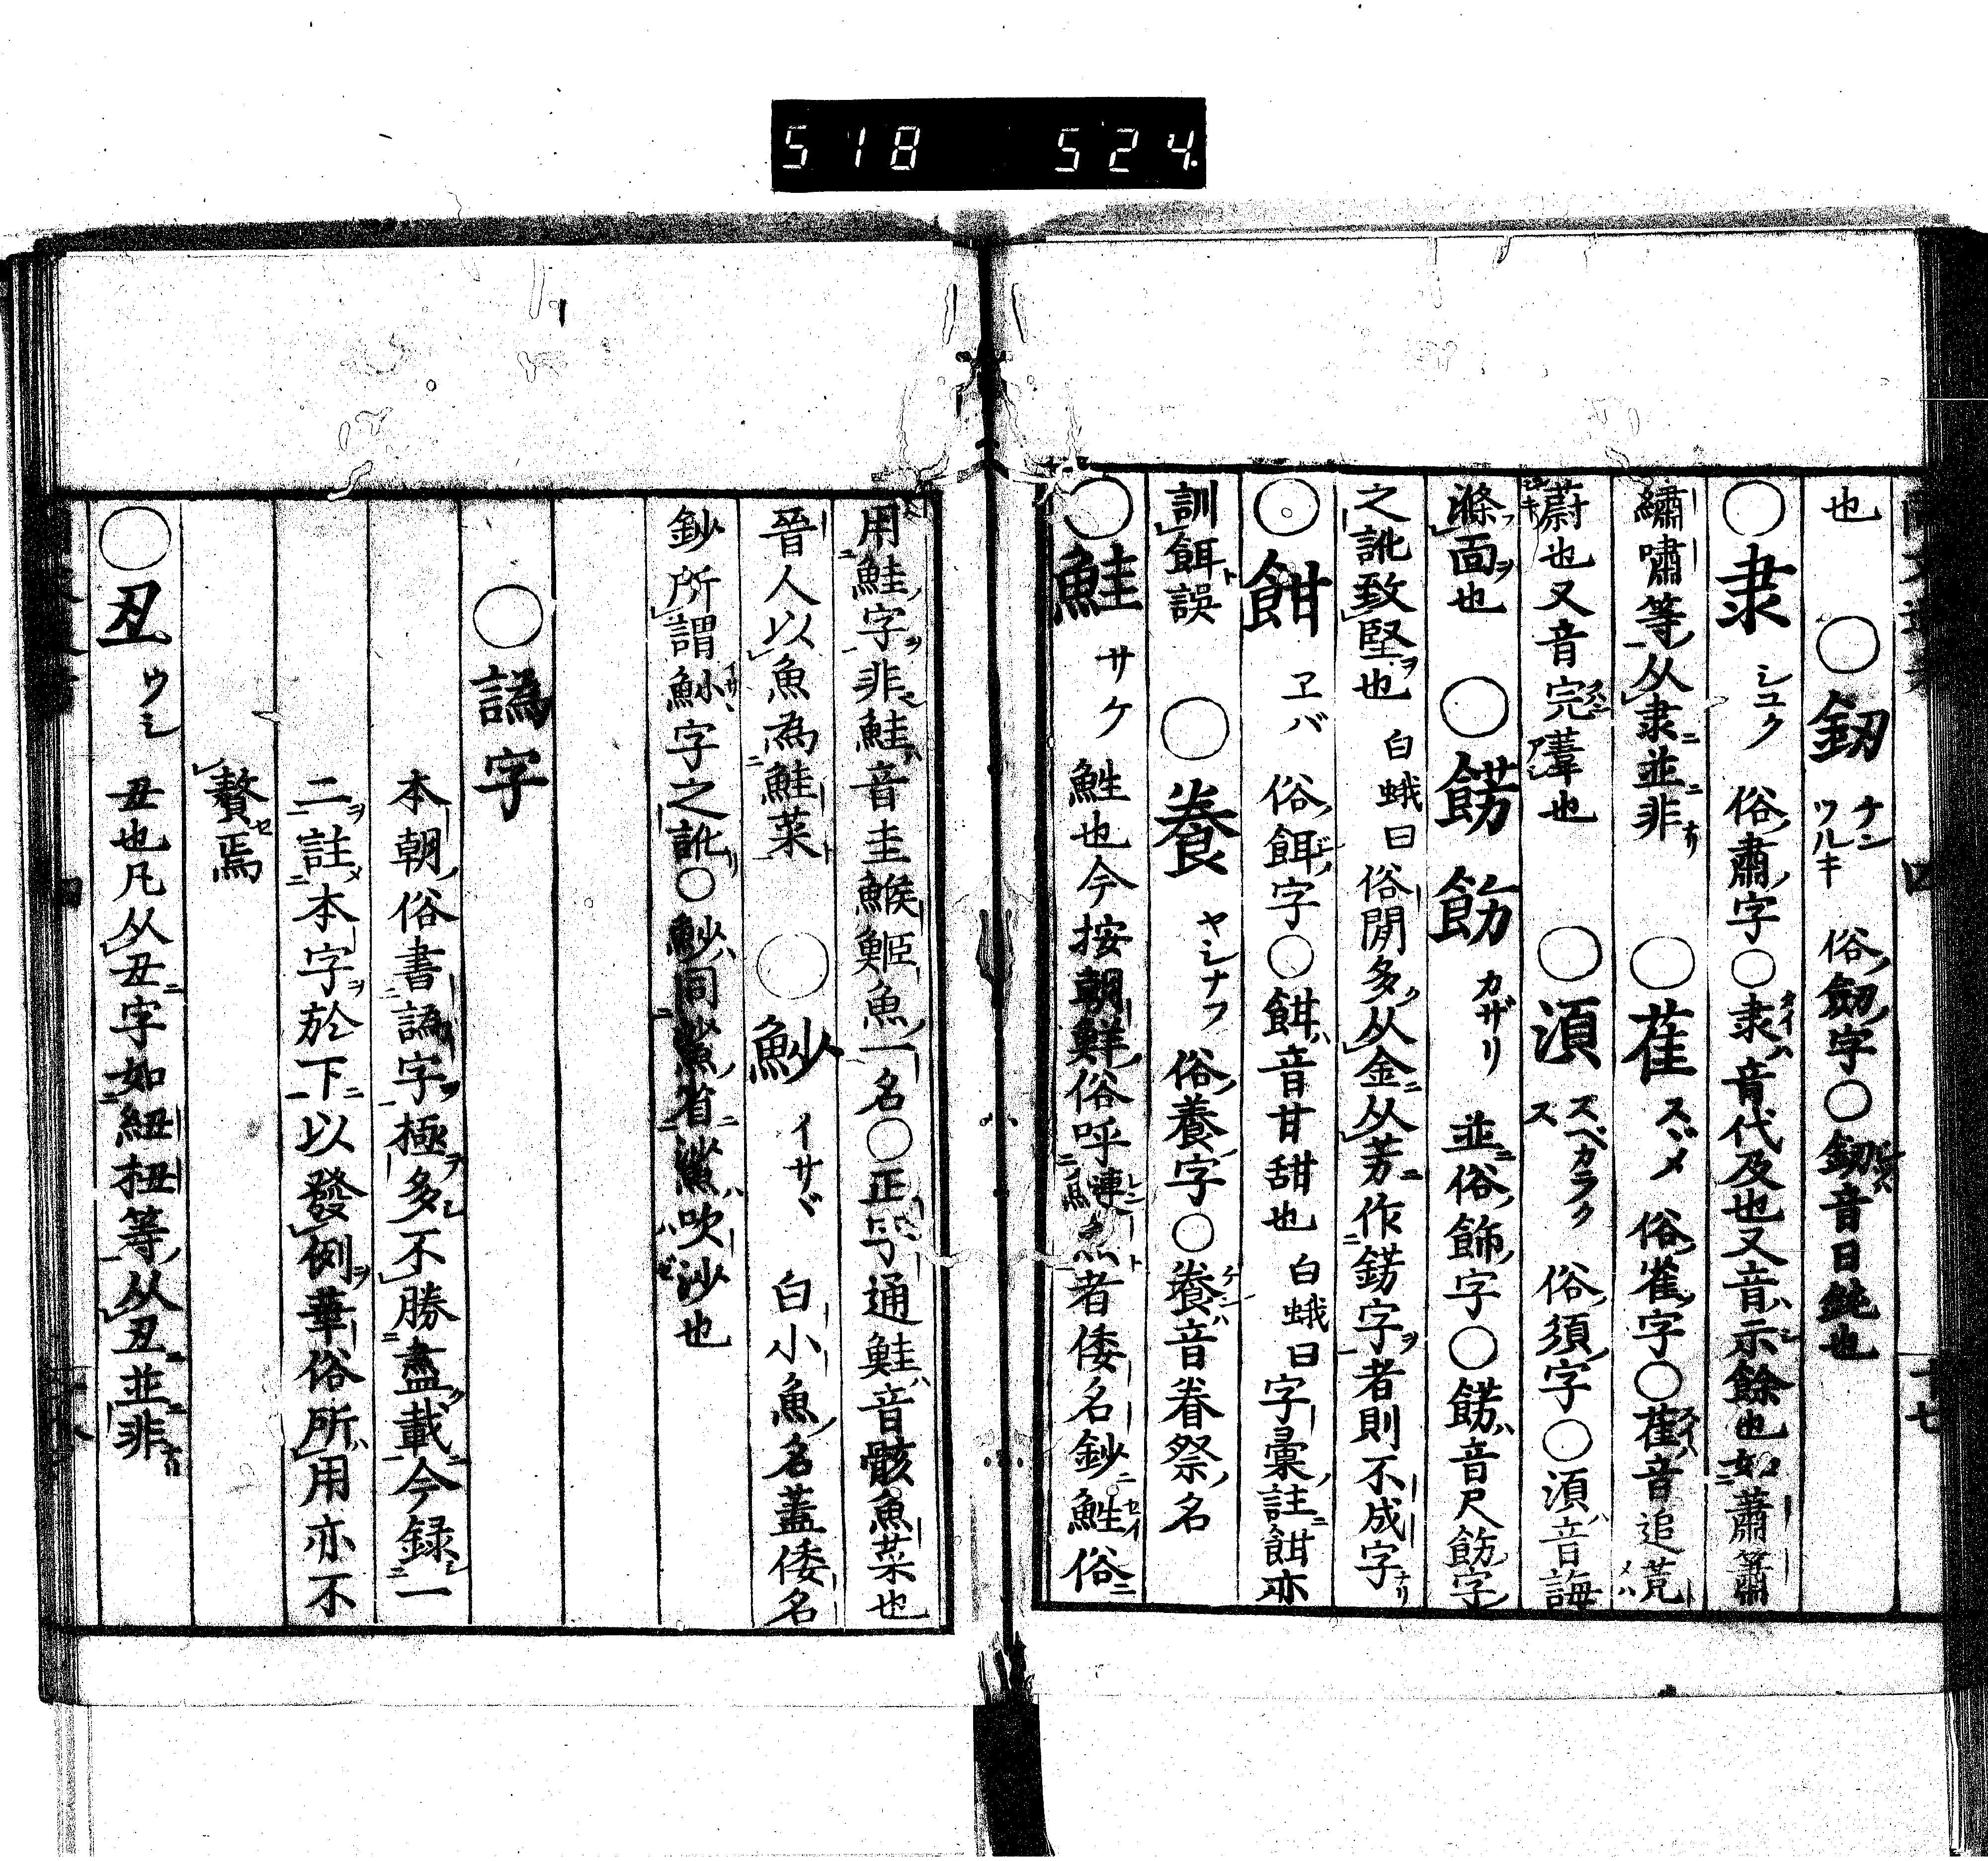 518 524
也 ○釼 ナシ ツルキ 俗劔字○釼音日鈍也
○隶 シユク 俗肅字○隶音代及也又音示餘也如蕭簫
繡嘯等从隶並非 ○萑 スヾメ 俗雀字○萑音追茺
蔚也又音完葦也 ○湏 スベカラク ス 俗須字○湏音誨
滌面也 ○餝 飭 カザリ 並俗飾字○餝音尺飭字
之訛致堅也 白蛾曰 俗間多从金从芳作錺字者則不成字
○䬲 ヱバ 俗餌字○䬲音甘甜也 白蛾曰 字彙註䬲亦
訓餌誤 ○飬 ヤシナフ 俗養字○飬音眷祭名
○鮭 サケ 鮏也今按朝鮮俗呼鰱魚者倭名鈔鮏俗
用鮭字非鮭音圭鯸䱌魚一名○正字通鮭音骸魚菜也
晉人以魚為鮭菜 ○魦 イサヾ 白小魚名蓋倭名
鈔所謂䱊字之訛○魦同鯊省鯊吹沙也
○譌字
本朝俗書譌字極多不勝盡載今録一
二註本字於下以發例華俗所用亦不
贅焉
○刄 ウシ 丑也凡从丑字如紐扭等从刄並非